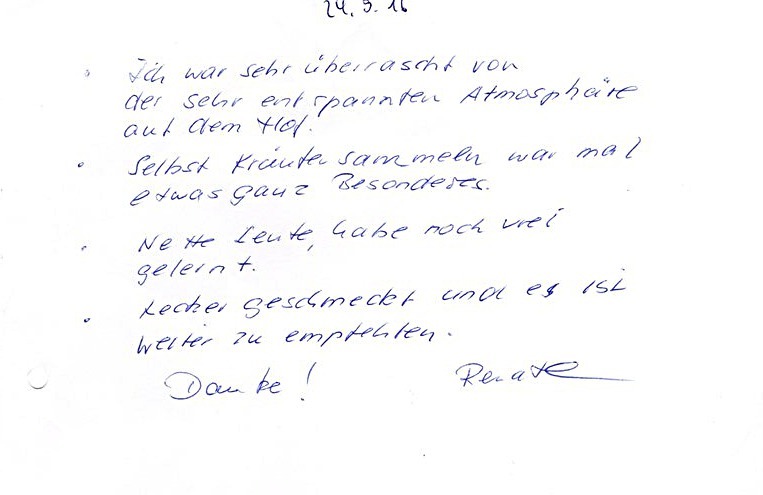 24.9.16
• Ich war sehr überrascht von
der sehr entspannten Atmosphäre
auf dem Hof.
• Selbst Kräuter sammeln war mal
etwas ganz Besonderes.
• Nette Leute, habe noch viel
gelernt.
• Lecker geschmeckt und es ist
weiter zu empfehlen.
Danke! Renate